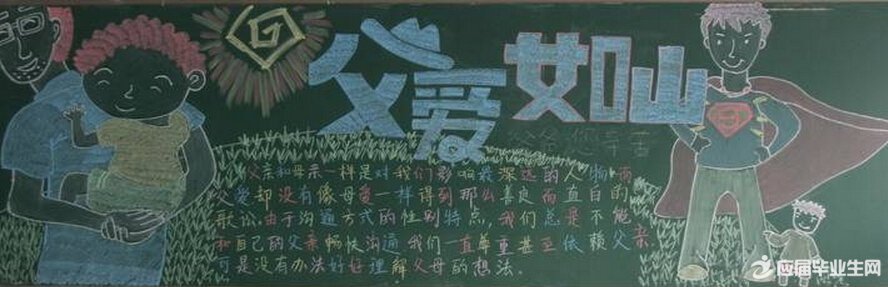 父爱如山
爸爸您辛苦
父亲和母亲一样是对我们影响最深远的人物而
父爱却没有像母爱一样得到那么善良而直白的
歌讼.由于沟通方式的性别特点,我们总是不能
和自己的父亲畅快沟通我们一直尊重甚至依赖父亲
可是没有办法好好理解父母的想法。
应届毕业生网